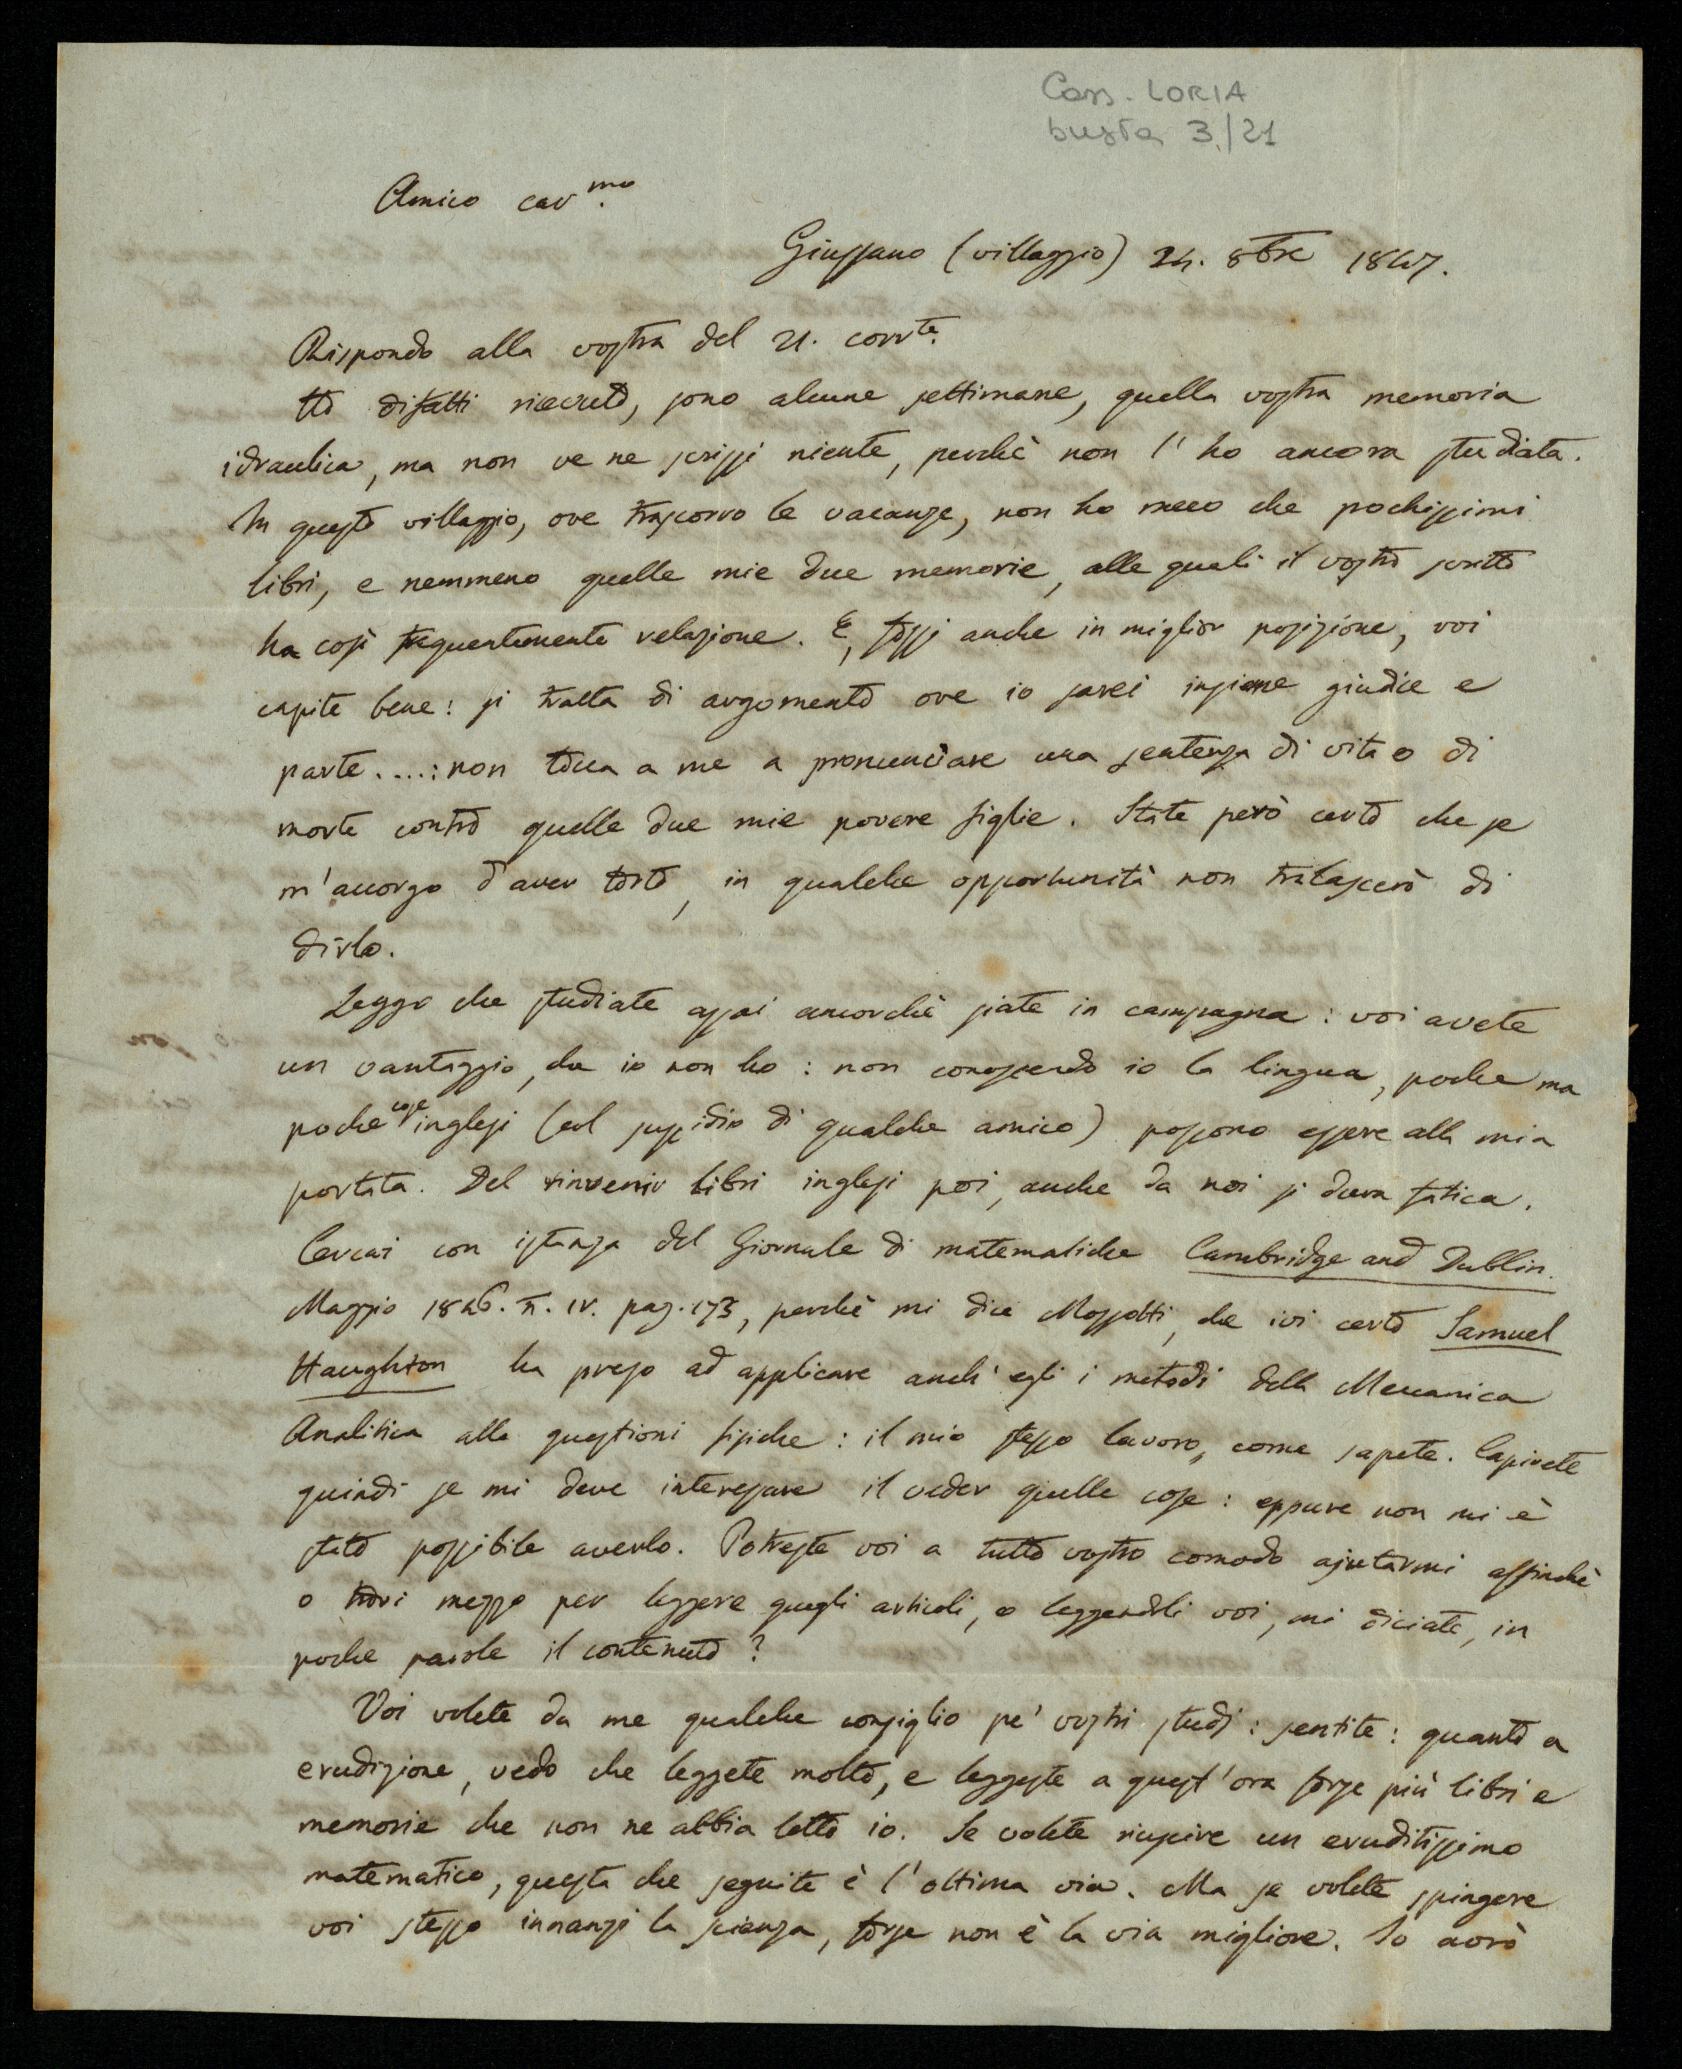 Cass. LORIA
busta 3/21
Amico car.mo
Giussano (villaggio) 24. 8bre 1847.
Rispondo alla vostra del 21. corrte.
Ho difatti ricevuto, sono alcune settimane, quella vostra memoria
idraulica, ma non ve ne scrissi niente, perchè non l'ho ancora studiata.
In questo villaggio, ove trascorro le vacanze, non ho meco che pochissimi
libri, e nemmeno quelle mie due memorie, alle quali il vostro scritto
ha così frequentemente relazione. E, fossi anche in miglior posizione, voi
capite bene: si tratta di argomento ove io sarei insieme giudice e
parte....: non tocca a me a pronunciare una sentenza di vita o di
morte contro quelle due mie povere figlie. State però certo che se
m'accorgo d'aver torto, in qualche opportunità non tralascerò di
dirlo.
Leggo che studiate assai ancorchè siate in campagna: voi avete
un vantaggio, che io non ho: non conoscendo io la lingua, poche ma
poche cose inglesi (col sussidio di qualche amico) possono essere alla mia
portata. Del rinvenir libri inglesi poi, anche da noi si dura fatica.
Cercai con istanza del Giornale di matematiche Cambridge and Dublin.
Maggio 1846. n. IV. pag. 173, perchè mi dice Mossotti, che ivi certo Samuel
Haughton ha preso ad applicare anch'egli i metodi della Meccanica
Analitica alle questioni fisiche: il mio stesso lavoro, come sapete. Capirete
quindi se mi deve interessare il veder quelle cose: eppure non mi è
stato possibile averlo. Potreste voi a tutto vostro comodo ajutarmi affinchè
o trovi mezzo per leggere quegli articoli, o leggendoli voi, mi diciate, in
poche parole il contenuto?
Voi volete da me qualche consiglio pe' vostri studj: sentite: quanto a
erudizione, vedo che leggete molto, e leggeste a quest'ora forse più libri e
memorie che non ne abbia letto io. Se volete riuscire un eruditissimo
matematico, questa che seguite è l'ottima via. Ma se volete spingere
voi stesso innanzi la scienza, forse non è la via migliore. Io avrò